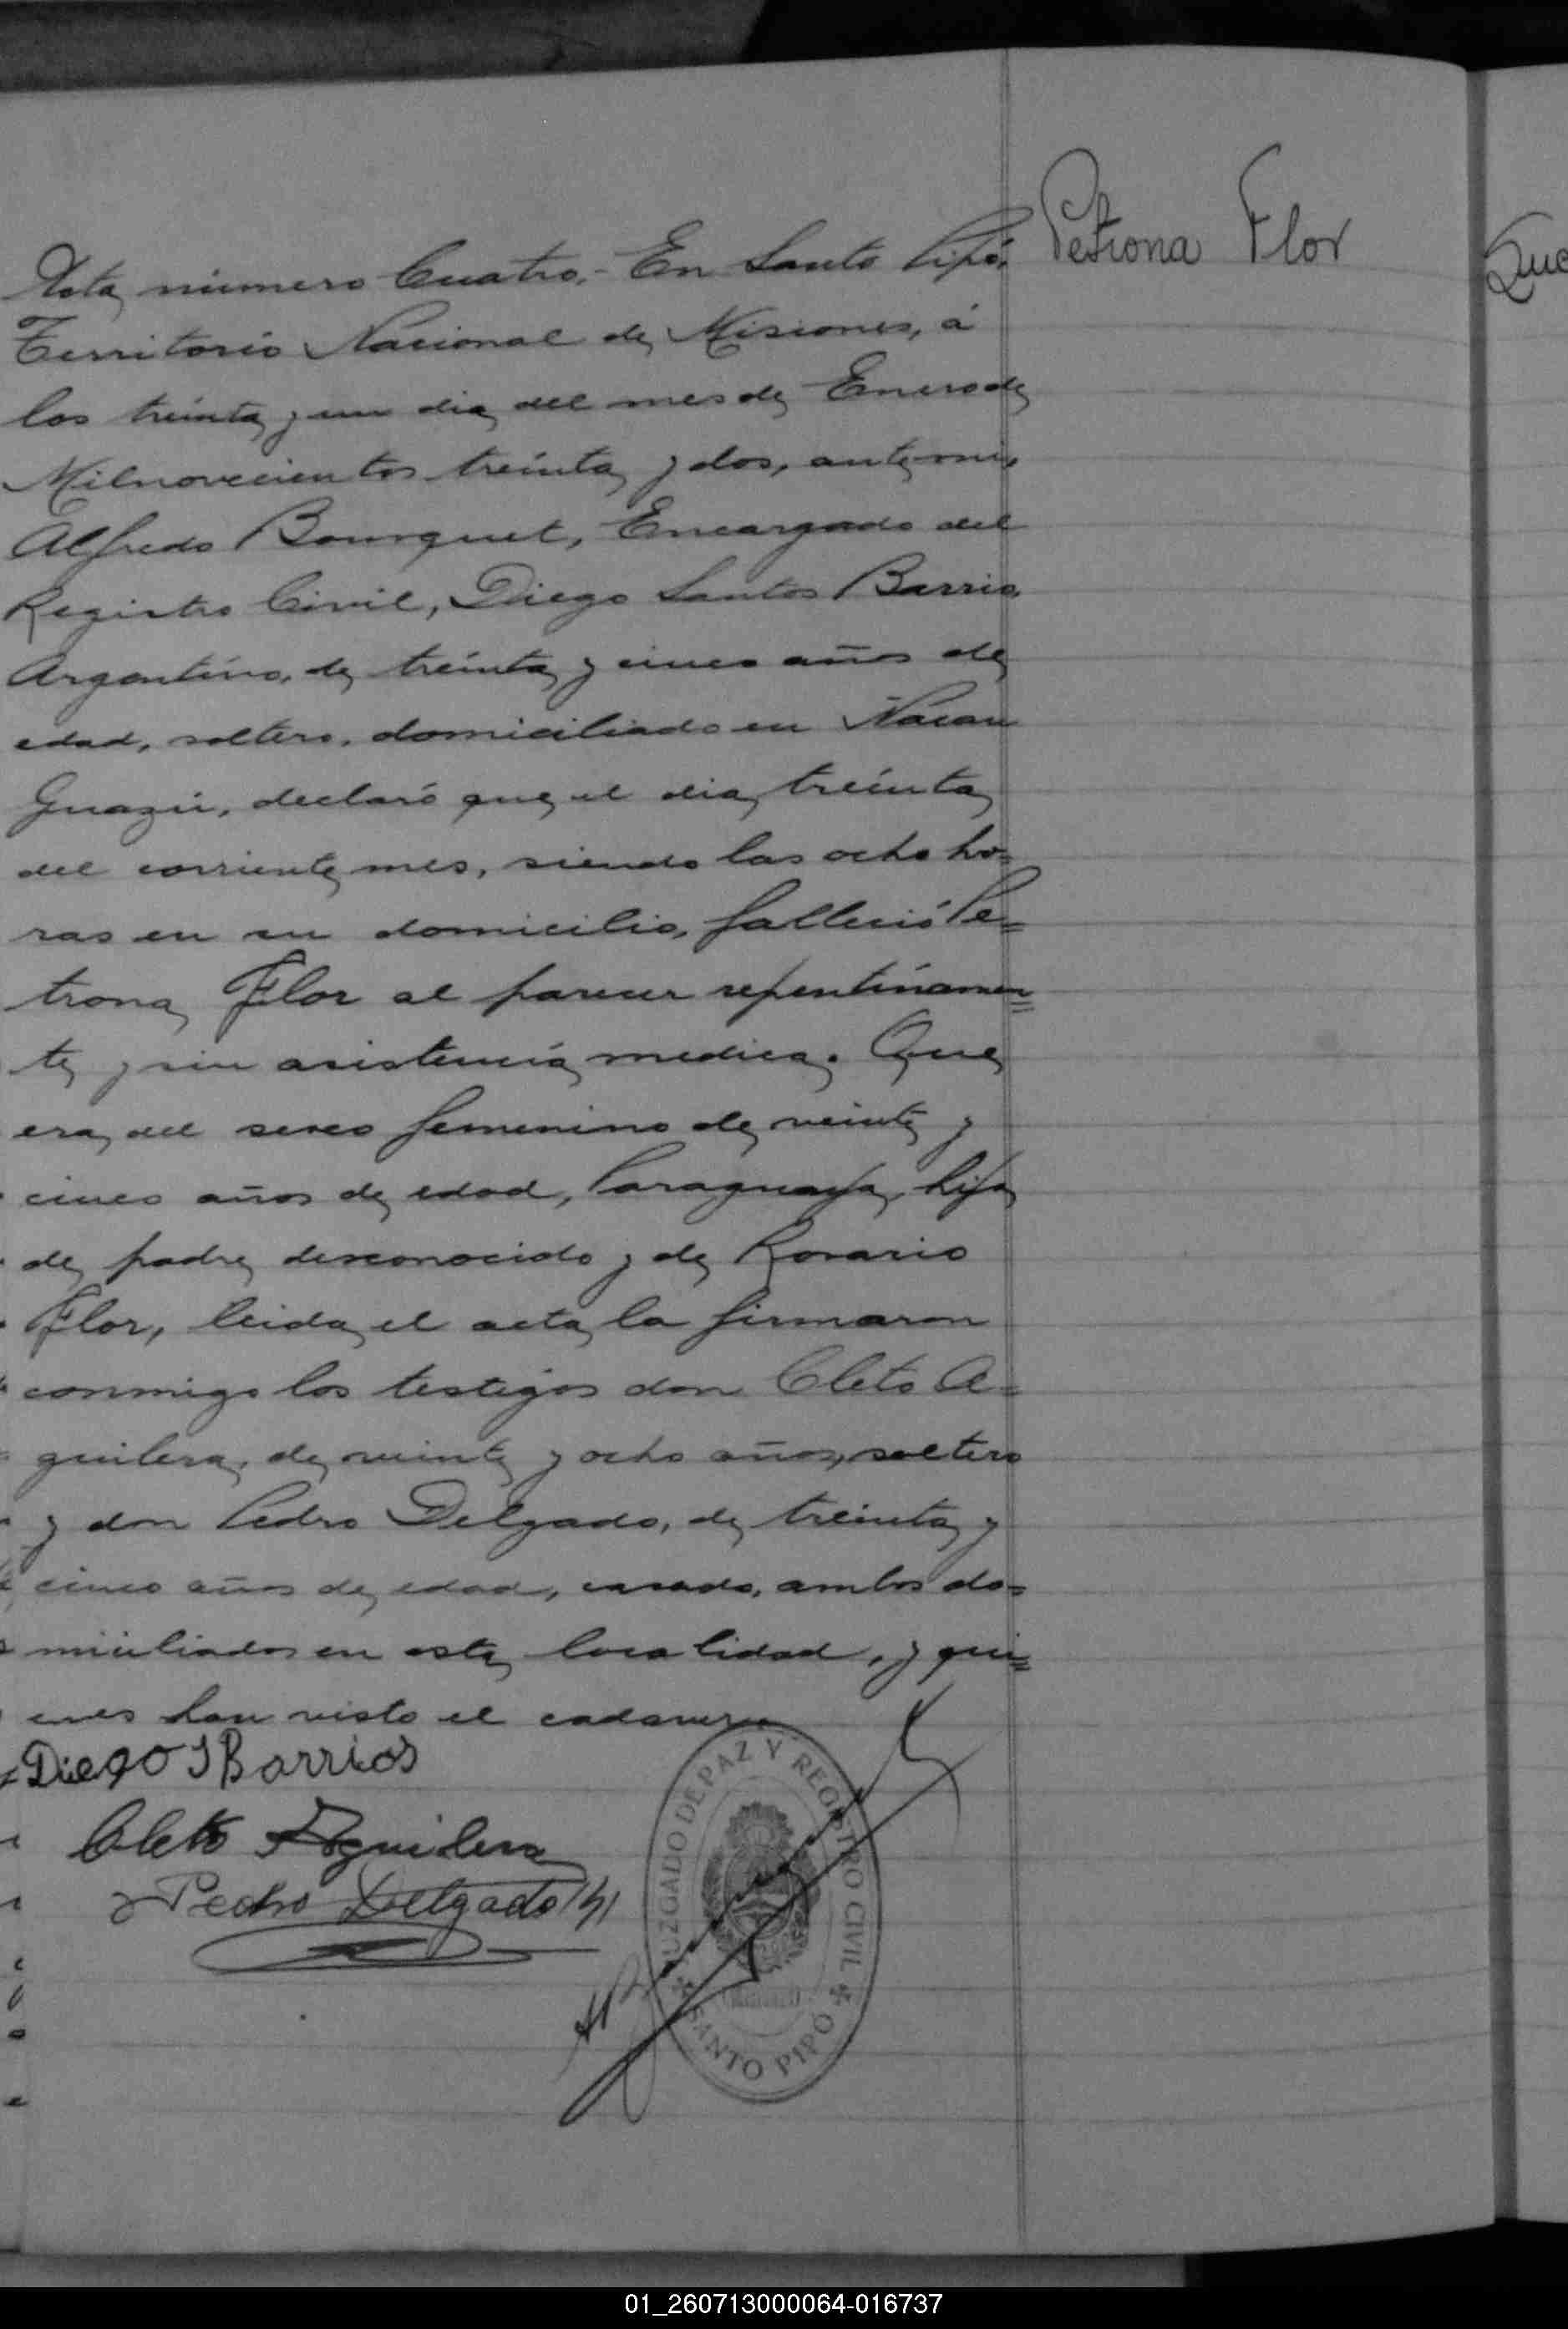 Petrona Flor
Acta número Cuatro.- En Santo Pipó,
Territorio Nacional de Misiones, á
los treinta y un dia del mes de Enero de
Milnovecientos treinta y dos, ante mi,
Alfredo Bourquet, Encargado del
Registro Civil, Diego Santos Barrio,
Argentino, de treinta y cinco años de
edad, soltero, domiciliado en Ñacan
Guazú, declaró que el dia treinta
del corriente mes, siendo las ocho ho=
ras en su domicilio, falleció Pe=
trona Flor al parecer repentinamen=
te y sin asistencia medica. Que
era del sexo femenino de veinte y
cinco años de edad, Paraguaya, hija
de padre desconocido y de Rosario
Flor, leida el acta la firmaron
conmigo los testigos don Cleto A=
guilera, de veinte y ocho años, soltero
y don Pedro Delgado, de treinta y
cinco años de edad, casado, ambos do=
miciliados en esta localidad, y qui=
enes han visto el cadaver
Diego S Barrios
Cleto Aguilera
Pedro Delgado
JUZGADO DE PAZ Y REGISTRO CIVIL
SANTO PIPÓ
01_260713000064-016737